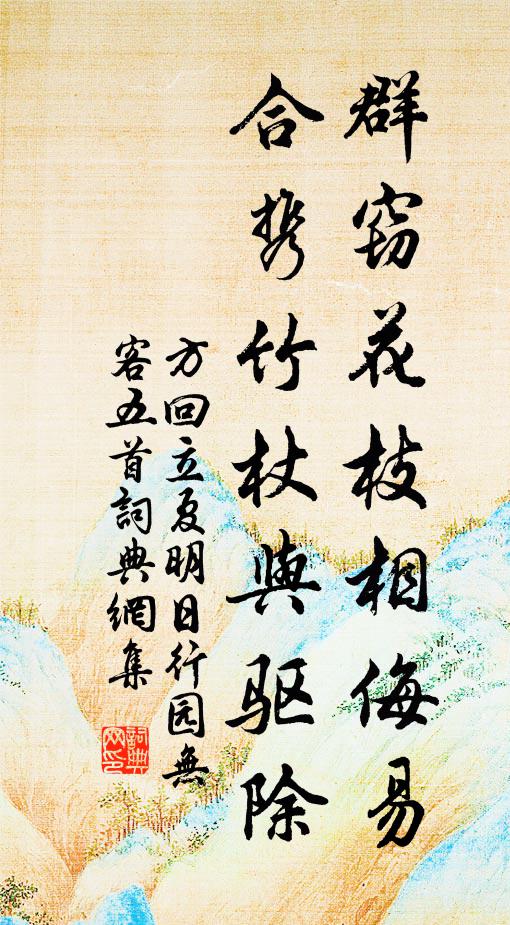 群窃花枝相侮易
合携竹杖與驱除
方回立夏明日行园無
客五首詞典網集
詞典
网印